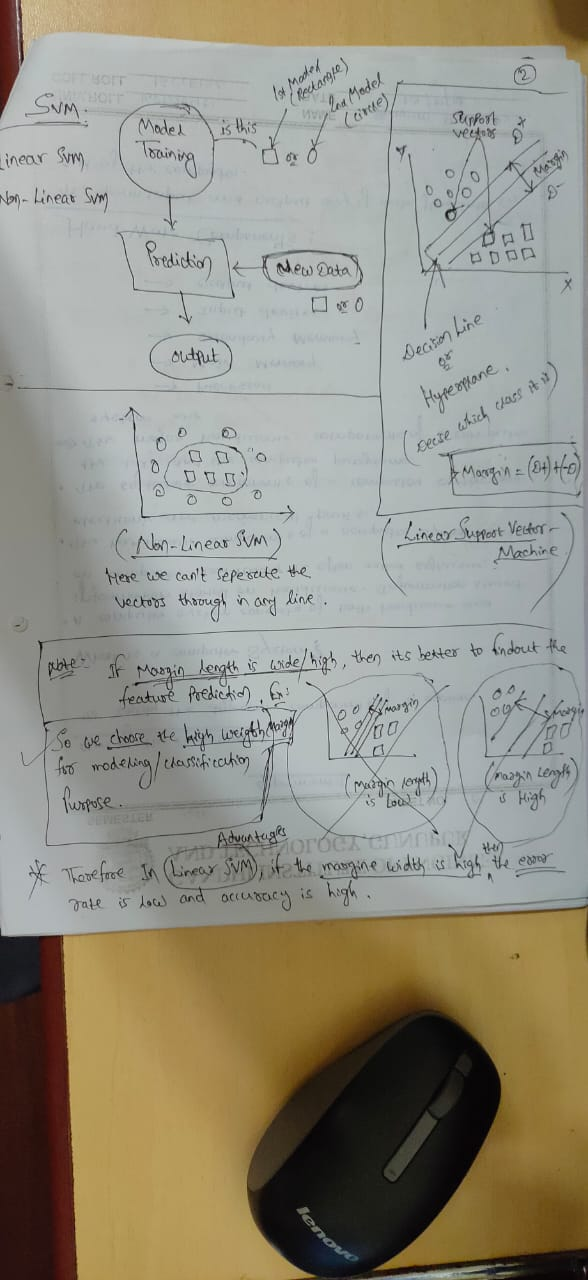 SVM:
Linear SVM
Non-Linear SVM
Model
Training
is this
□ or O
1st Model
(Rectangle)
2nd Model
(circle)
Prediction
New Data
□ or O
output
2
Support
vectors
D+
Margin
D-
Y
X
Decision Line
or
Hyperplane.
(Decise which class it is)
* Margin = (D+) + (-D)
(Linear Support Vector-
Machine)
(Non-Linear SVM)
Here we can't seperate the
vectors through in any line.
Note:- If Margin length is wide/high, then its better to findout the
feature Prediction. Ex:
So we choose the high weigth Margin
for modeling/classification
Purpose.
Margin
(Margin length
is Low)
Margin
(margin length
is High
Advantages
* Therefore In (Linear SVM), if the margine width is high, then the error
rate is low and accuracy is high.
lenovo